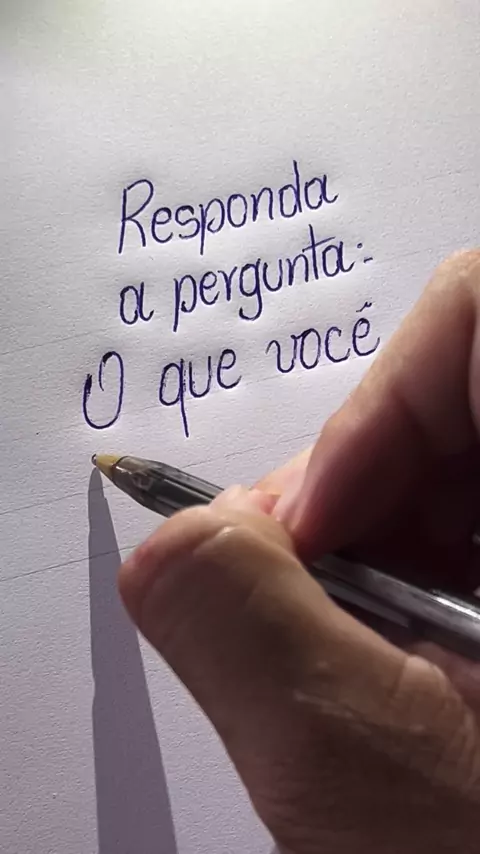 Responda
a pergunta:
O que você